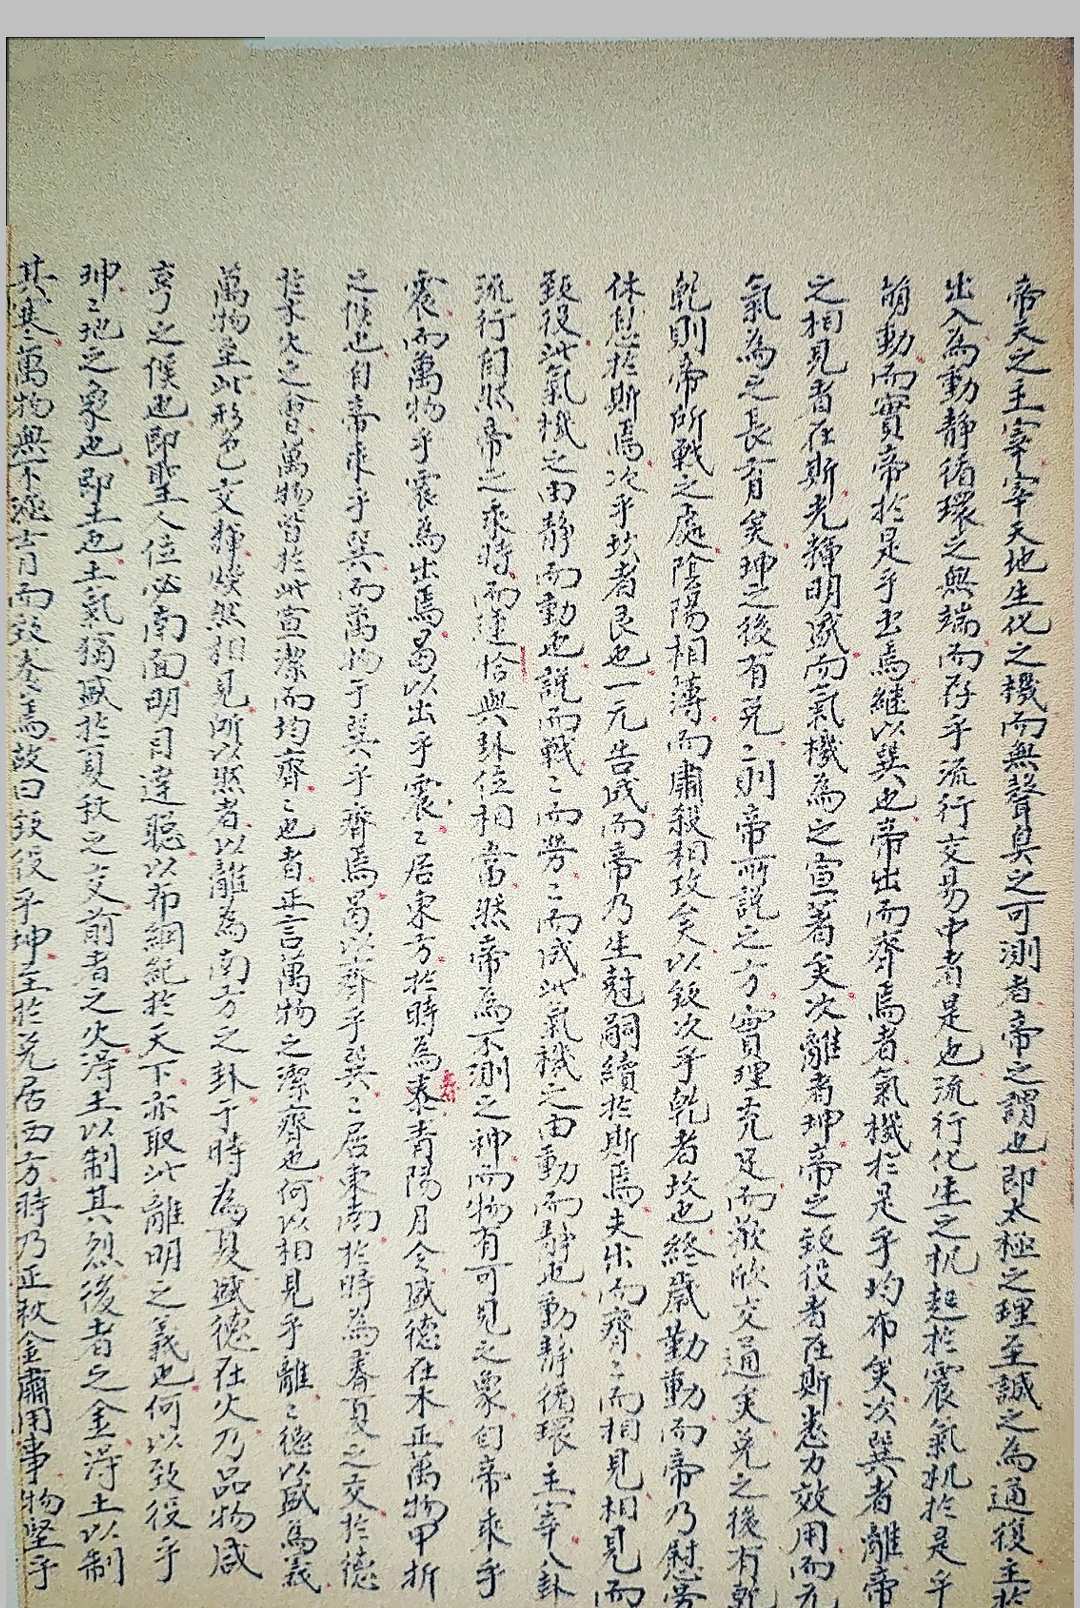 帝天之主宰宰天地生化之機而無聲臭之可測者帝之謂也即太極之理至誠之為通復主於
出入為動靜循環之無端而存乎流行交易中者是也流行化生之机起於震氣机於是乎
萌動而實帝於是乎出焉繼以巽也帝出而齊焉者氣機於是乎均布矣次巽者離帝
之相見者在斯光輝明盛而氣機為之宣著矣次離者坤帝之致役者在斯悉力效用而元
氣為之長育矣坤之後有兌〻則帝所說之方實理充足而歡欣交通矣兌之後有乾
乾則帝所戰之處陰陽相薄而肅殺相攻矣以致次乎乾者坎也終歲勤動而帝乃慰勞
休息於斯焉次乎坎者艮也一元告成而帝乃生尅嗣續於斯焉夫出而齊〻而相見相見而
致役此氣機之由靜而動也說而戰〻而勞〻而成此氣機之由動而靜也動靜循環主宰八卦
流行自然帝之乘時而運恰與卦位相當然帝為不測之神而物有可見之象自帝乘乎
震而萬物乎震為出焉曷以出乎震〻居東方於時為泰青陽月令盛德在木正萬物甲折
之候也自帝乘乎巽而萬物于巽乎齊焉曷以齊乎巽〻居東南於時為春夏之交於德
為木火之會萬物皆於此宣潔而均齊〻也者正言萬物之潔齊也何以相見乎離〻德以盛為義
萬物至此形色交輝燦然相見所以然者以離為南方之卦于時為夏盛德在火乃品物咸
亨之候也即聖人位必南面明目達聰以布綱紀於天下亦取此離明之義也何以致役乎
坤〻地之象也即土也土氣獨盛於夏秋之交前者之火得土以制其烈後者之金得土以制
其寒萬物無不而致養焉故曰致役乎坤至於兌居西方時乃正秋金肅用事物堅乎